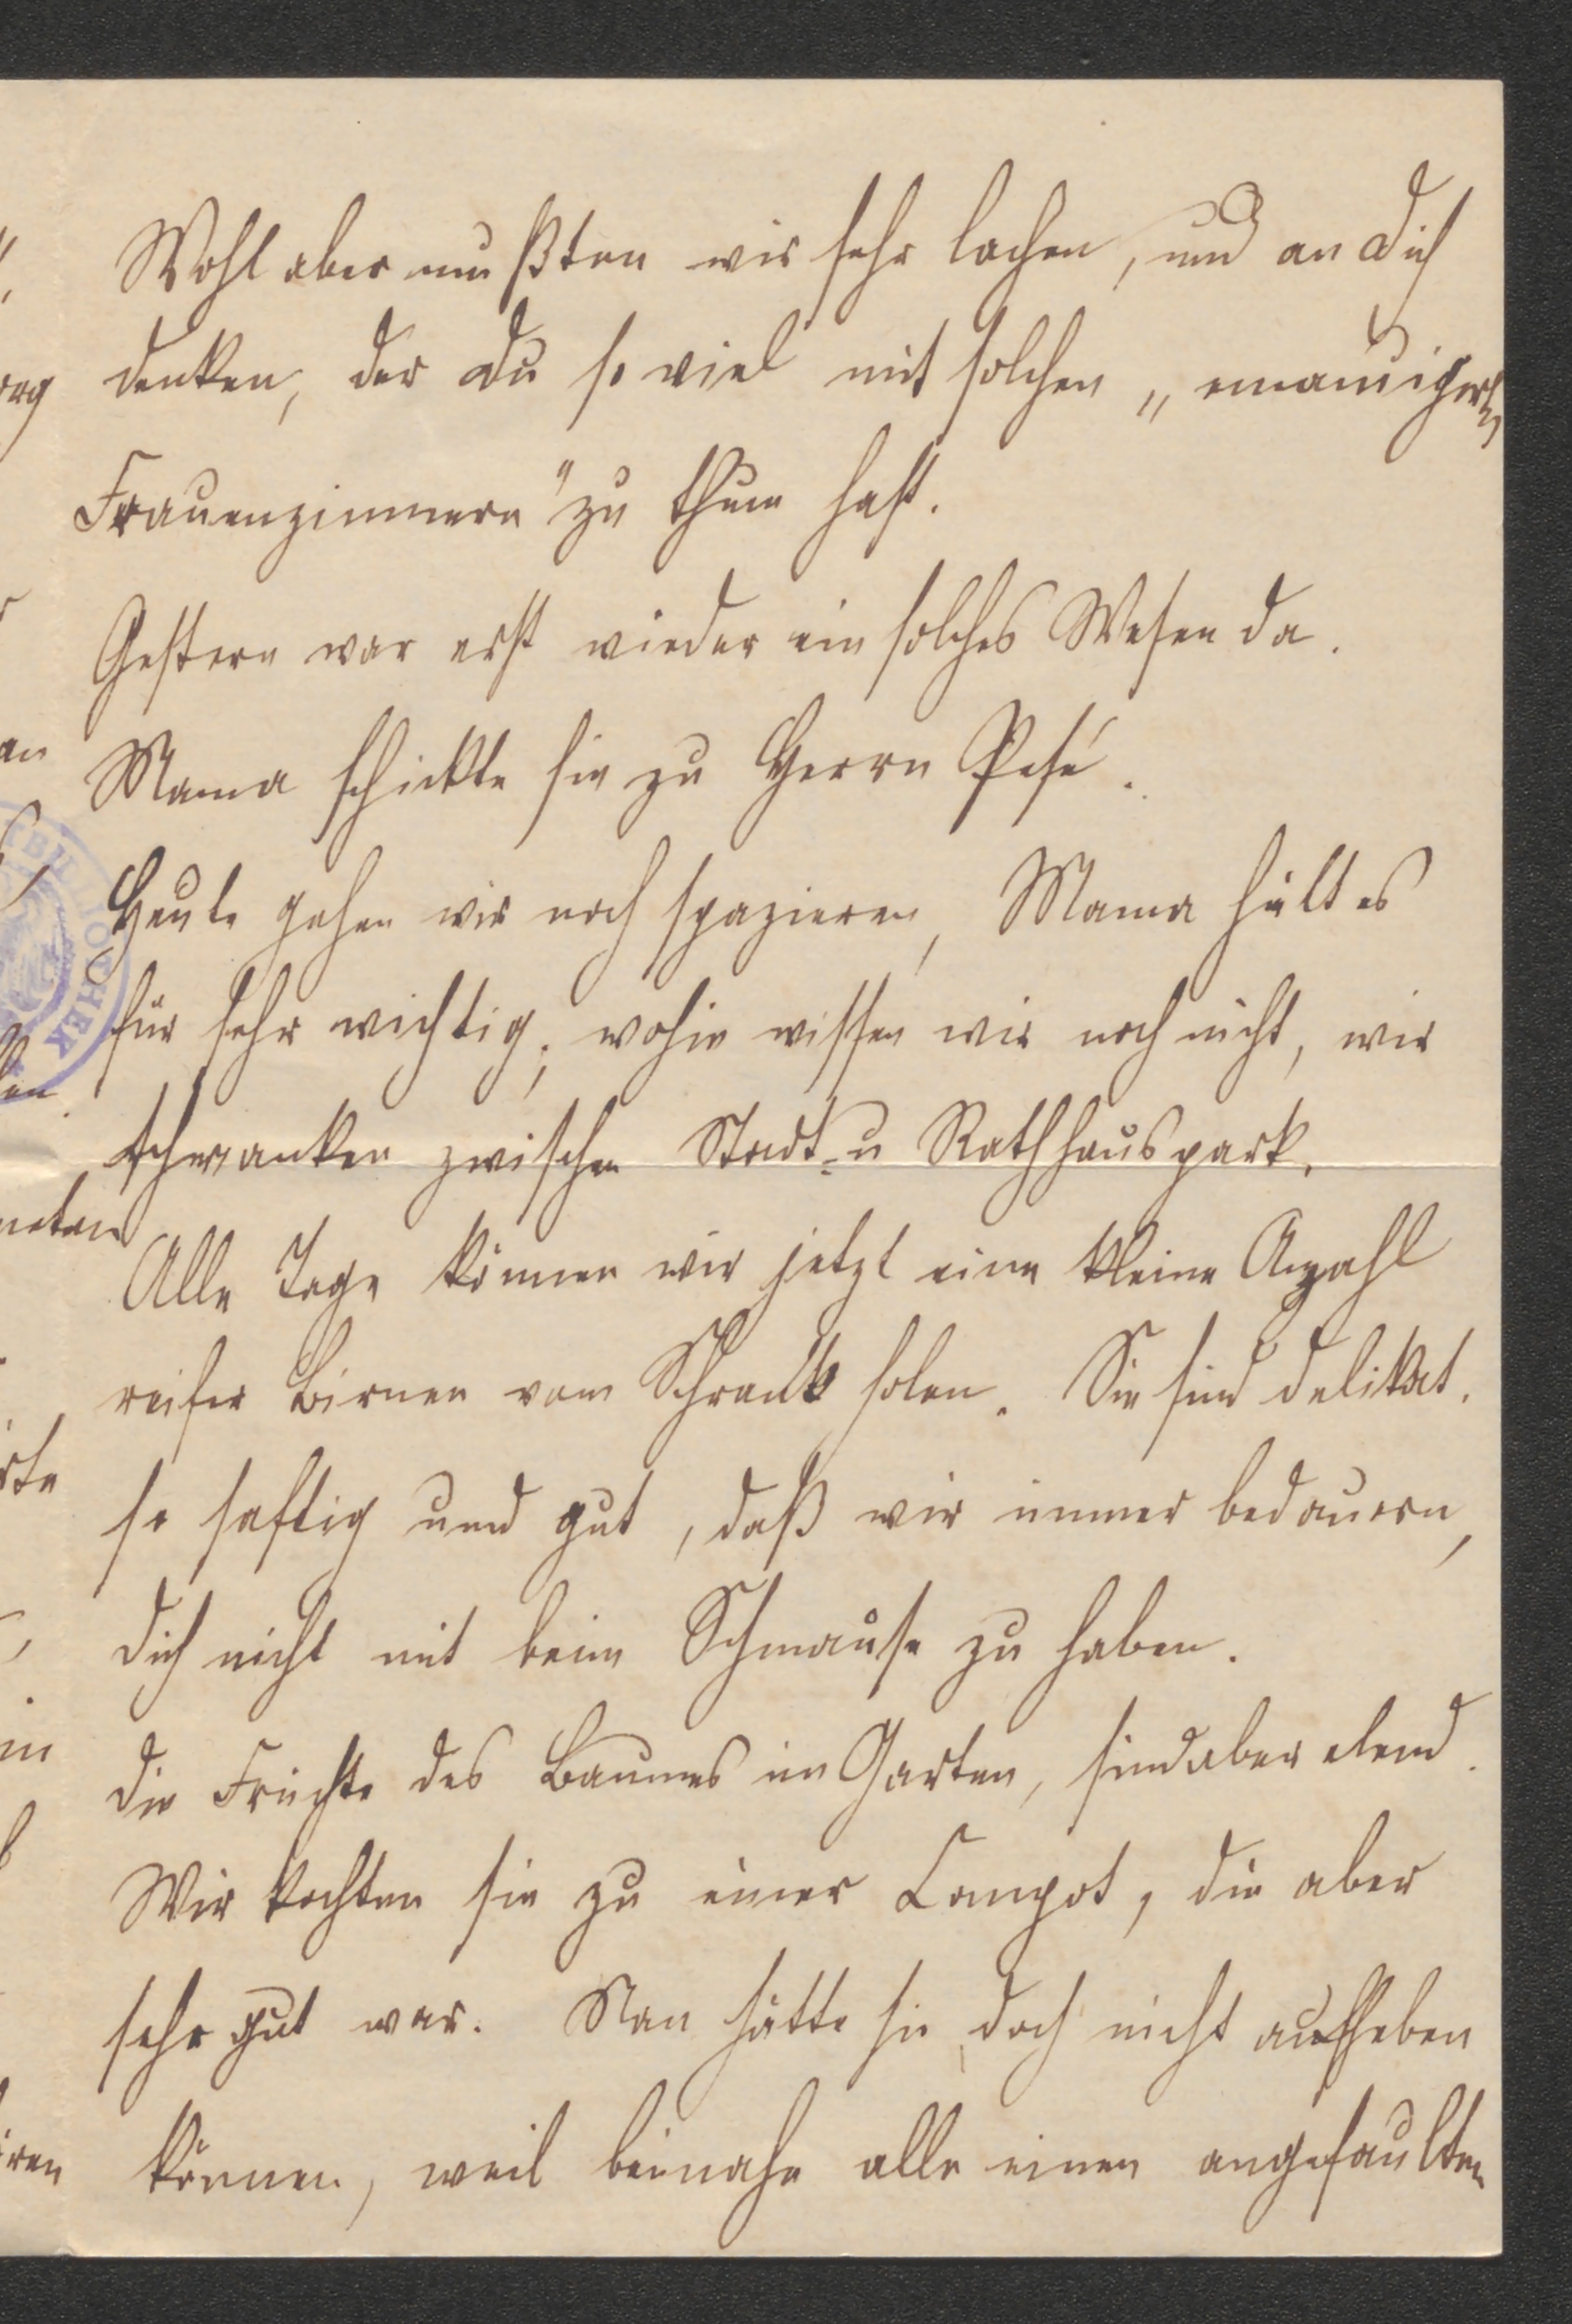 Wohl aber mußten wir sehr lachen, und an Dich
denken, der Du so viel mit solchen „emancipirten
Frauenzimmern" zu thun hast.
Gestern war erst wieder ein solches Wesen da.
Mama schickte sie zu Herrn
Heute gehen wir noch spazieren, Mama hält es
für sehr wichtig; wohin wissen wir noch nicht, wir
schwanken zwischen Stadt- u Rathhauspark.
Alle Tage können wir jetzt eine kleine Anzahl
reifer Birnen vom Schrank holen. Sie sind delikat.
so saftig und gut, daß wir immer bedauern,
Dich nicht mit beim Schmause zu haben.
Die Früchte des Baumes im Garten, sind aber elend.
Wir kochten sie zu einer Compot, die aber
sehr gut war. Man hätte sie doch nicht aufheben
können, weil beinahe alle einen angefaulten